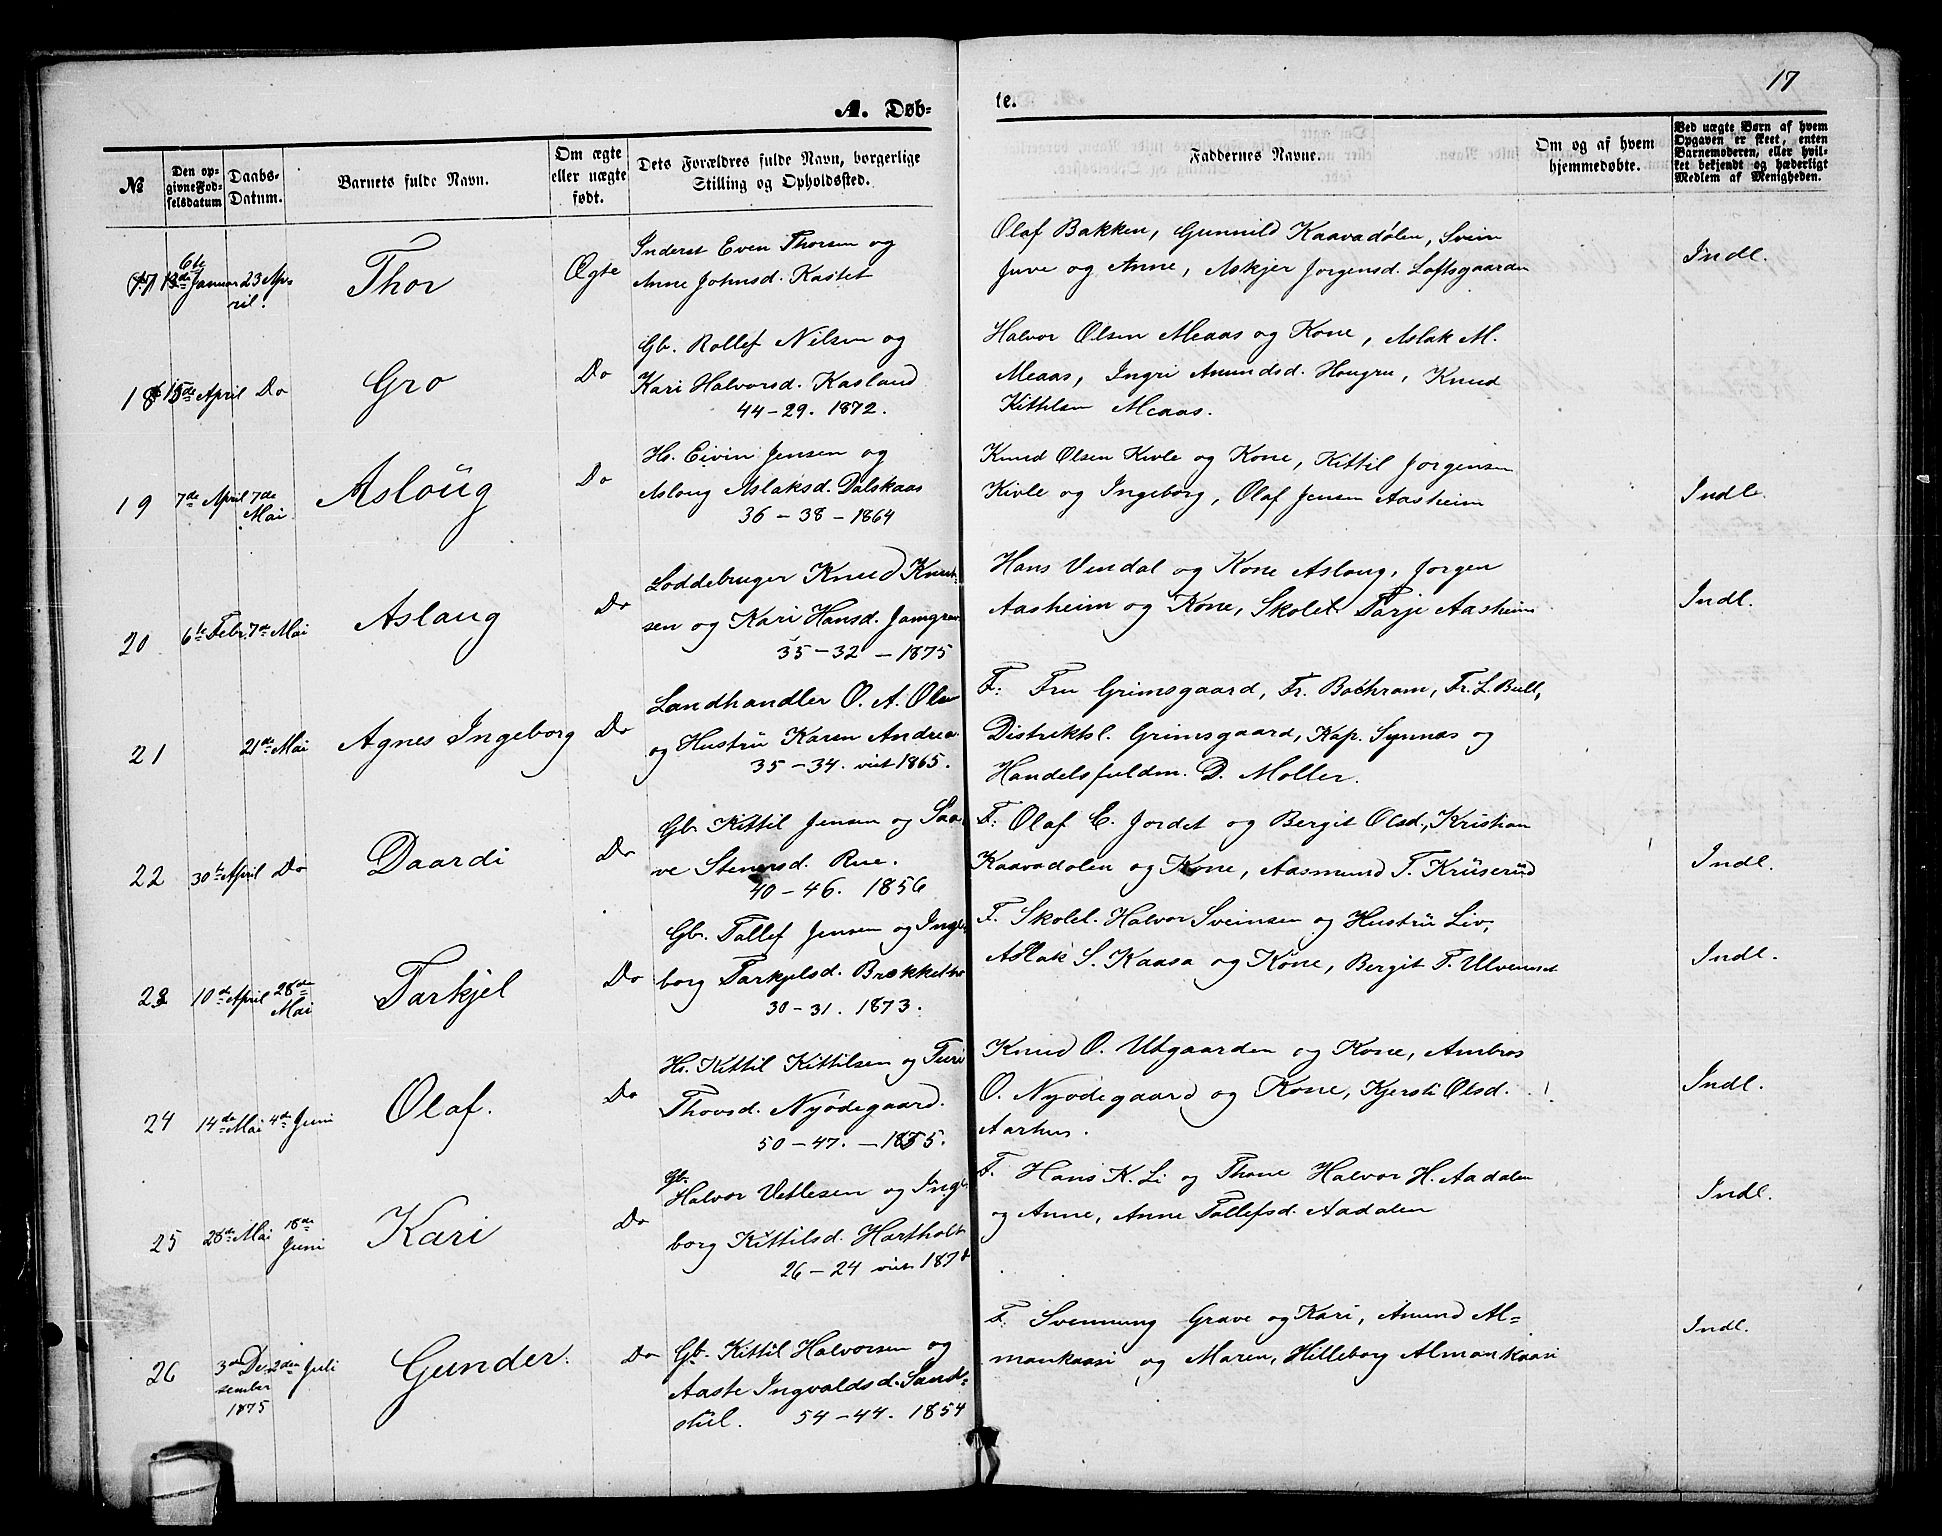 17
A. Døb-
te.
№
Den op-
givne Fød-
selsdatum
Daabs-
Datum.
Barnets fulde Navn.
Om ægte
eller uægte
født.
Dets Forældres fulde Navn, borgerlige
Stilling og Opholdssted.
Faddernes Navne.
Om og af hvem
hjemmedøbte.
Ved uægte Børn af hvem
Opgaven er skeet, enten
Barnemoderen, eller hvil-
ket bekjendt og hæderligt
Medlem af Menigheden.
17 6te Januar 23 Ap-
ril.
Thor
Ægte
Inderst Even Thorsen og
Anne Johnsd. Kastet
Olaf Bakken, Gunnild Kaavadølen, Svein
Juve og Anne, Askjer Jorgensd. Loftsgaarden
Indl.
18 15de April Do
Gro
Do
Gb. Rollef Nilsen og
Kari Halvorsd. Kasland
44-29. 1872.
Halvor Olsen Meaas og Kone, Aslak M.
Meaas, Ingri Amundsd. Haugru, Knud
Kittilsen Meaas.
19 7de April 7de
Mai
Asloug
Do
Hs. Eivin Jensen og
Asloug Aslaksd. Dalskaas
36-38-1864
Knud Olsen Kivle og Kone, Kittil Jorgensen
Kivle og Ingeborg, Olaf Jensen Aasheim
Indl.
20 6te Febr. 7de Mai
Aslaug
Do
Loddebruger Knud Knut-
sen og Kari Hansd. Jamgrav
35-32-1875
Hans Vendal og Kone Aslaug, Jorgen
Aasheim og Kone, Skolel. Tarje Aasheim
Indl.
21 21de Mai
Agnes Ingeborg
Do
Landhandler O. A. Olsen
og Hustru Karen Andrea
35-34. viet 1865.
F: Fru Grimsgaard, Fr. Bochram, Fr. L. Bull,
Distriktsl. Grimsgaard, Kap. Synnæs og
Handelsfuldm. D. Møller.
22 30te April Do
Daardi
Do
Gb. Kittil Jensen og Saa-
ve Stenersd. Rue.
40-46. 1856
F: Olaf E. Jordet og Bergit Olsd., Kristian
Kaavadølen og Kone, Aasmund T. Krüserüd
Indl.
23 10de April 28de
Mai
Tarkjel
Do
Gb. Tollef Jensen og Inge-
borg Tarkjelsd. Brækketo
30-31. 1873.
F. Skolel. Halvor Sveinsen og Hustru Liv,
Aslak S. Kaasa og Kone, Bergit T. Ulvenæset
Indl.
24 14de Mai 4de Juni
Olaf.
Do
Hs. Kittil Kittilsen og Turi
Thovsd. Nyødegaard.
50-47.-1855.
Knud O. Utgaarden og Kone, Ambros
O. Nyødegaard og Kone, Kjersti Olsd.
Aarhus.
Indl.
25 28de Mai 18de
Juni
Kari
Do
Gb.
Halvor Vetlesen og Inge-
borg Kittilsd. Hartholt
26-24 viet
F. Hans K. Li og Thone Halvor H. Aadalen
og Anne, Anne Tollefsd. Aadalen
Indl.
26 3de De- 2den Juli
sember
1875
Gunder.
Do
Gb. Kittil Halvorsen og
Aaste Ingvaldsd. Sand-
skil. 54-44. 1854
F: Svennung Grave og Kari, Amund Al-
mankaasi og Maren, Hilleborg Almankaasi
Indl.